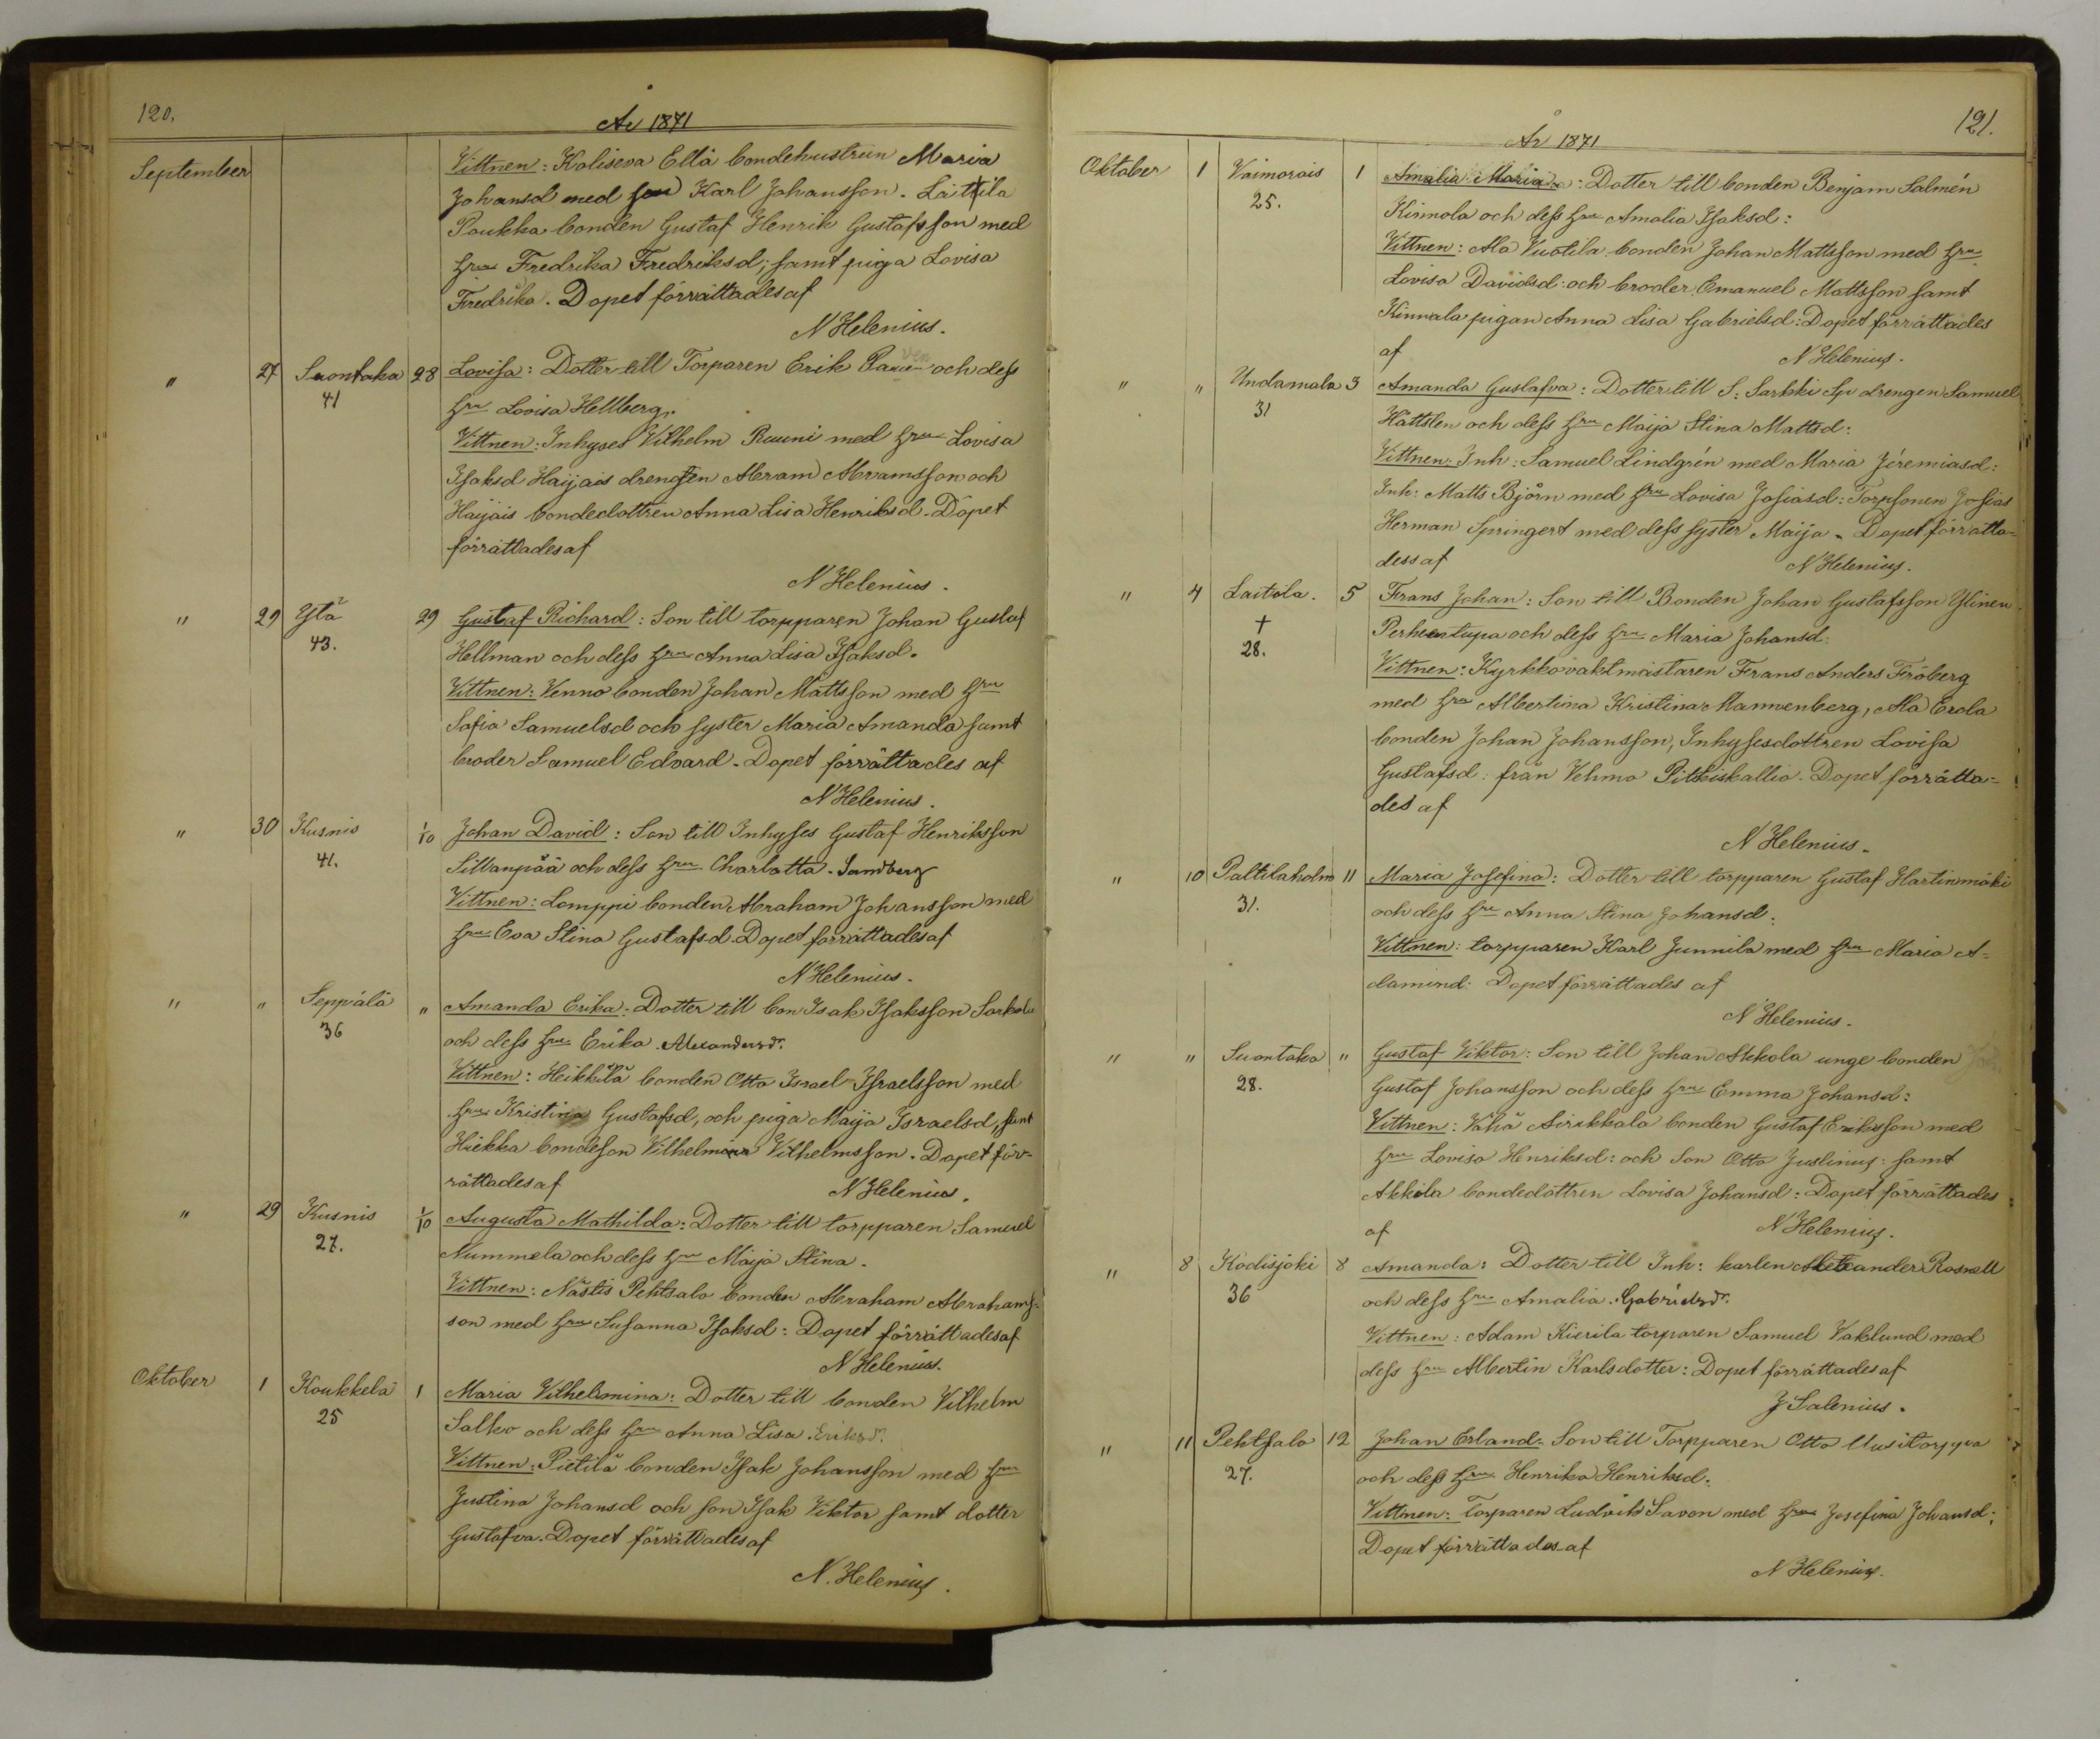 120.
År 1871
September
Vittnen: Koliseva Ellä bondehustrun Maria
Johansd med son Karl Johansson. Laitila
Poukka bonden Gustaf Henrik Gustafsson med
hru Fredrika Fredriksd; samt piga Lovisa
Fredrika. Dopet förrättades af
N Helenius.
" 27 Suontaka 28 Lovisa: Dotter till Torparen Erik och dess
41 hru Lovisa Hellberg.
Vittnen: Inhyses Vilhelm Ruuni med hru Lovisa
Isaksd Haijais drengen Abram Abramsson och
Haijais bondedottren Anna Lisa Henriksd. Dopet
förrättades af
N Helenius.
" 29 Ytä 29 Gustaf Richard: Son till torpparen Johan Gustaf
43. Hellman och dess hru Anna Lisa Isaksd.
Vittnen: Venno bonden Johan Mattsson med hru
Sofia Samuelsd och syster Maria Amanda samt
broder Samuel Edvard. Dopet förrättades af
N Helenius.
" 30 Kusnis 1/10 Johan David: Son till Inhyses Gustaf Henriksson
41. Sillanpää och dess hru Charlotta. Sandberg
Vittnen: Lomppi bonden Abraham Johansson med
hru Eva Stina Gustafsd. Dopet förrättades af
N Helenius.
" " Seppälä " Amanda Erika: Dotter till bon Isak Isaksson Sorkola
36 och dess hru Erika. Alexandersdr.
Vittnen: Heikkilä bonden Otto Israel Israelsson med
hru Kristina Gustafsd, och piga Maija Israelsd, samt
Hiekka bondeson Vilhelm Vilhelmsson. Dopet för-
rättades af N Helenius.
" 29 Kusnis 1/10 Augusta Mathilda: Dotter till torpparen Samuel
27. Nummela och dess hru Maija Stina.
Vittnen: Nästis Pehtsalo bonden Abraham Abrahams-
son med hru Susanna Isaksd: Dopet förrättades af
N Helenius.
Oktober 1 Koukkela 1 Maria Vilhelmina: Dotter till bonden Vilhelm
25 Salko och dess hru Anna Lisa Eriksdr.
Vittnen: Pietilä bonden Isak Johansson med hru
Justina Johansd och son Isak Viktor samt dotter
Gustafva. Dopet förrättades af
N. Helenius.
121.
År 1871
Oktober 1 Vaimorais 1 Amalia Maria: Dotter till bonden Benjam Salmén
25. Kinnola och dess hru Amalia Isaksd:
Vittnen: Ala Vuotila bonden Johan Mattsson med hru
Lovisa Davidsd: och broder Emanuel Mattsson samt
Kinnala pigan Anna Lisa Gabrielsd: Dopet förrättades
af N Helenius.
" " Undamala 3 Amanda Gustafva: Dotter till S: Sarkki Sp drengen Samuel
31 Hättslen och dess hru Maija Stina Mattsd:
Vittnen: Inh: Samuel Lindgrén med Maria Jeremiasd:
Inh: Matts Björn med hru Lovisa Josiasd: Torpsonen Josias
Herman Springert med dess syster Maija. Dopet förrätta-
dess af N Helenius.
" 4 Laitila. 5 Frans Johan: Son till Bonden Johan Gustafsson Ylinen
† Perheentupa och dess hru Maria Johansd.
28. Vittnen: Kyrkkovaktmästaren Frans Anders Fröberg
med hru Albertina Kristina Mannenberg, Ala Erola
bonden Johan Johansson, Inhysesdottren Lovisa
Gustafsd: från Vehmo Pitkiskallio. Dopet förrätta-
des af
N Helenius.
" 10 Paltilaholm 11 Maria Josefina: Dotter till torpparen Gustaf Hartinmäki
31. och dess hru Anna Stina Johansd:
Vittnen: torpparen Karl Junnila med hru Maria A-
damind: Dopet förrättades af
N Helenius.
" " Suontaka " Gustaf Viktor: Son till Johan Akkola unge bonden
28. Gustaf Johansson och dess hru Emma Johansd:
Vittnen: Vähä Airikkala bonden Gustaf Eriksson med
hru Lovisa Henriksd: och Son Otto Justinus: samt
Akkola bondedöttren Lovisa Johansd: Dopet förrättades
af N Helenius.
" 8 Kodisjoki 8 Amanda: Dotter till Inh: karlen Alexander Rosnell
36 och dess hru Amalia. Gabrielsdr.
Vittnen: Adam Kierila torparen Samuel Vaklund med
dess hru Albertin Karlsdotter: Dopet förrättades af
J Salenius.
" 11 Pehtsalo 12 Johan Erland: Son till Torpparen Otto Uusitorppa
27. och dess hru Henrika Henriksd:
Vittnen: Torparen Ludvik Savon med hru Josefina Johansd;
Dopet förrättades af
N Helenius.